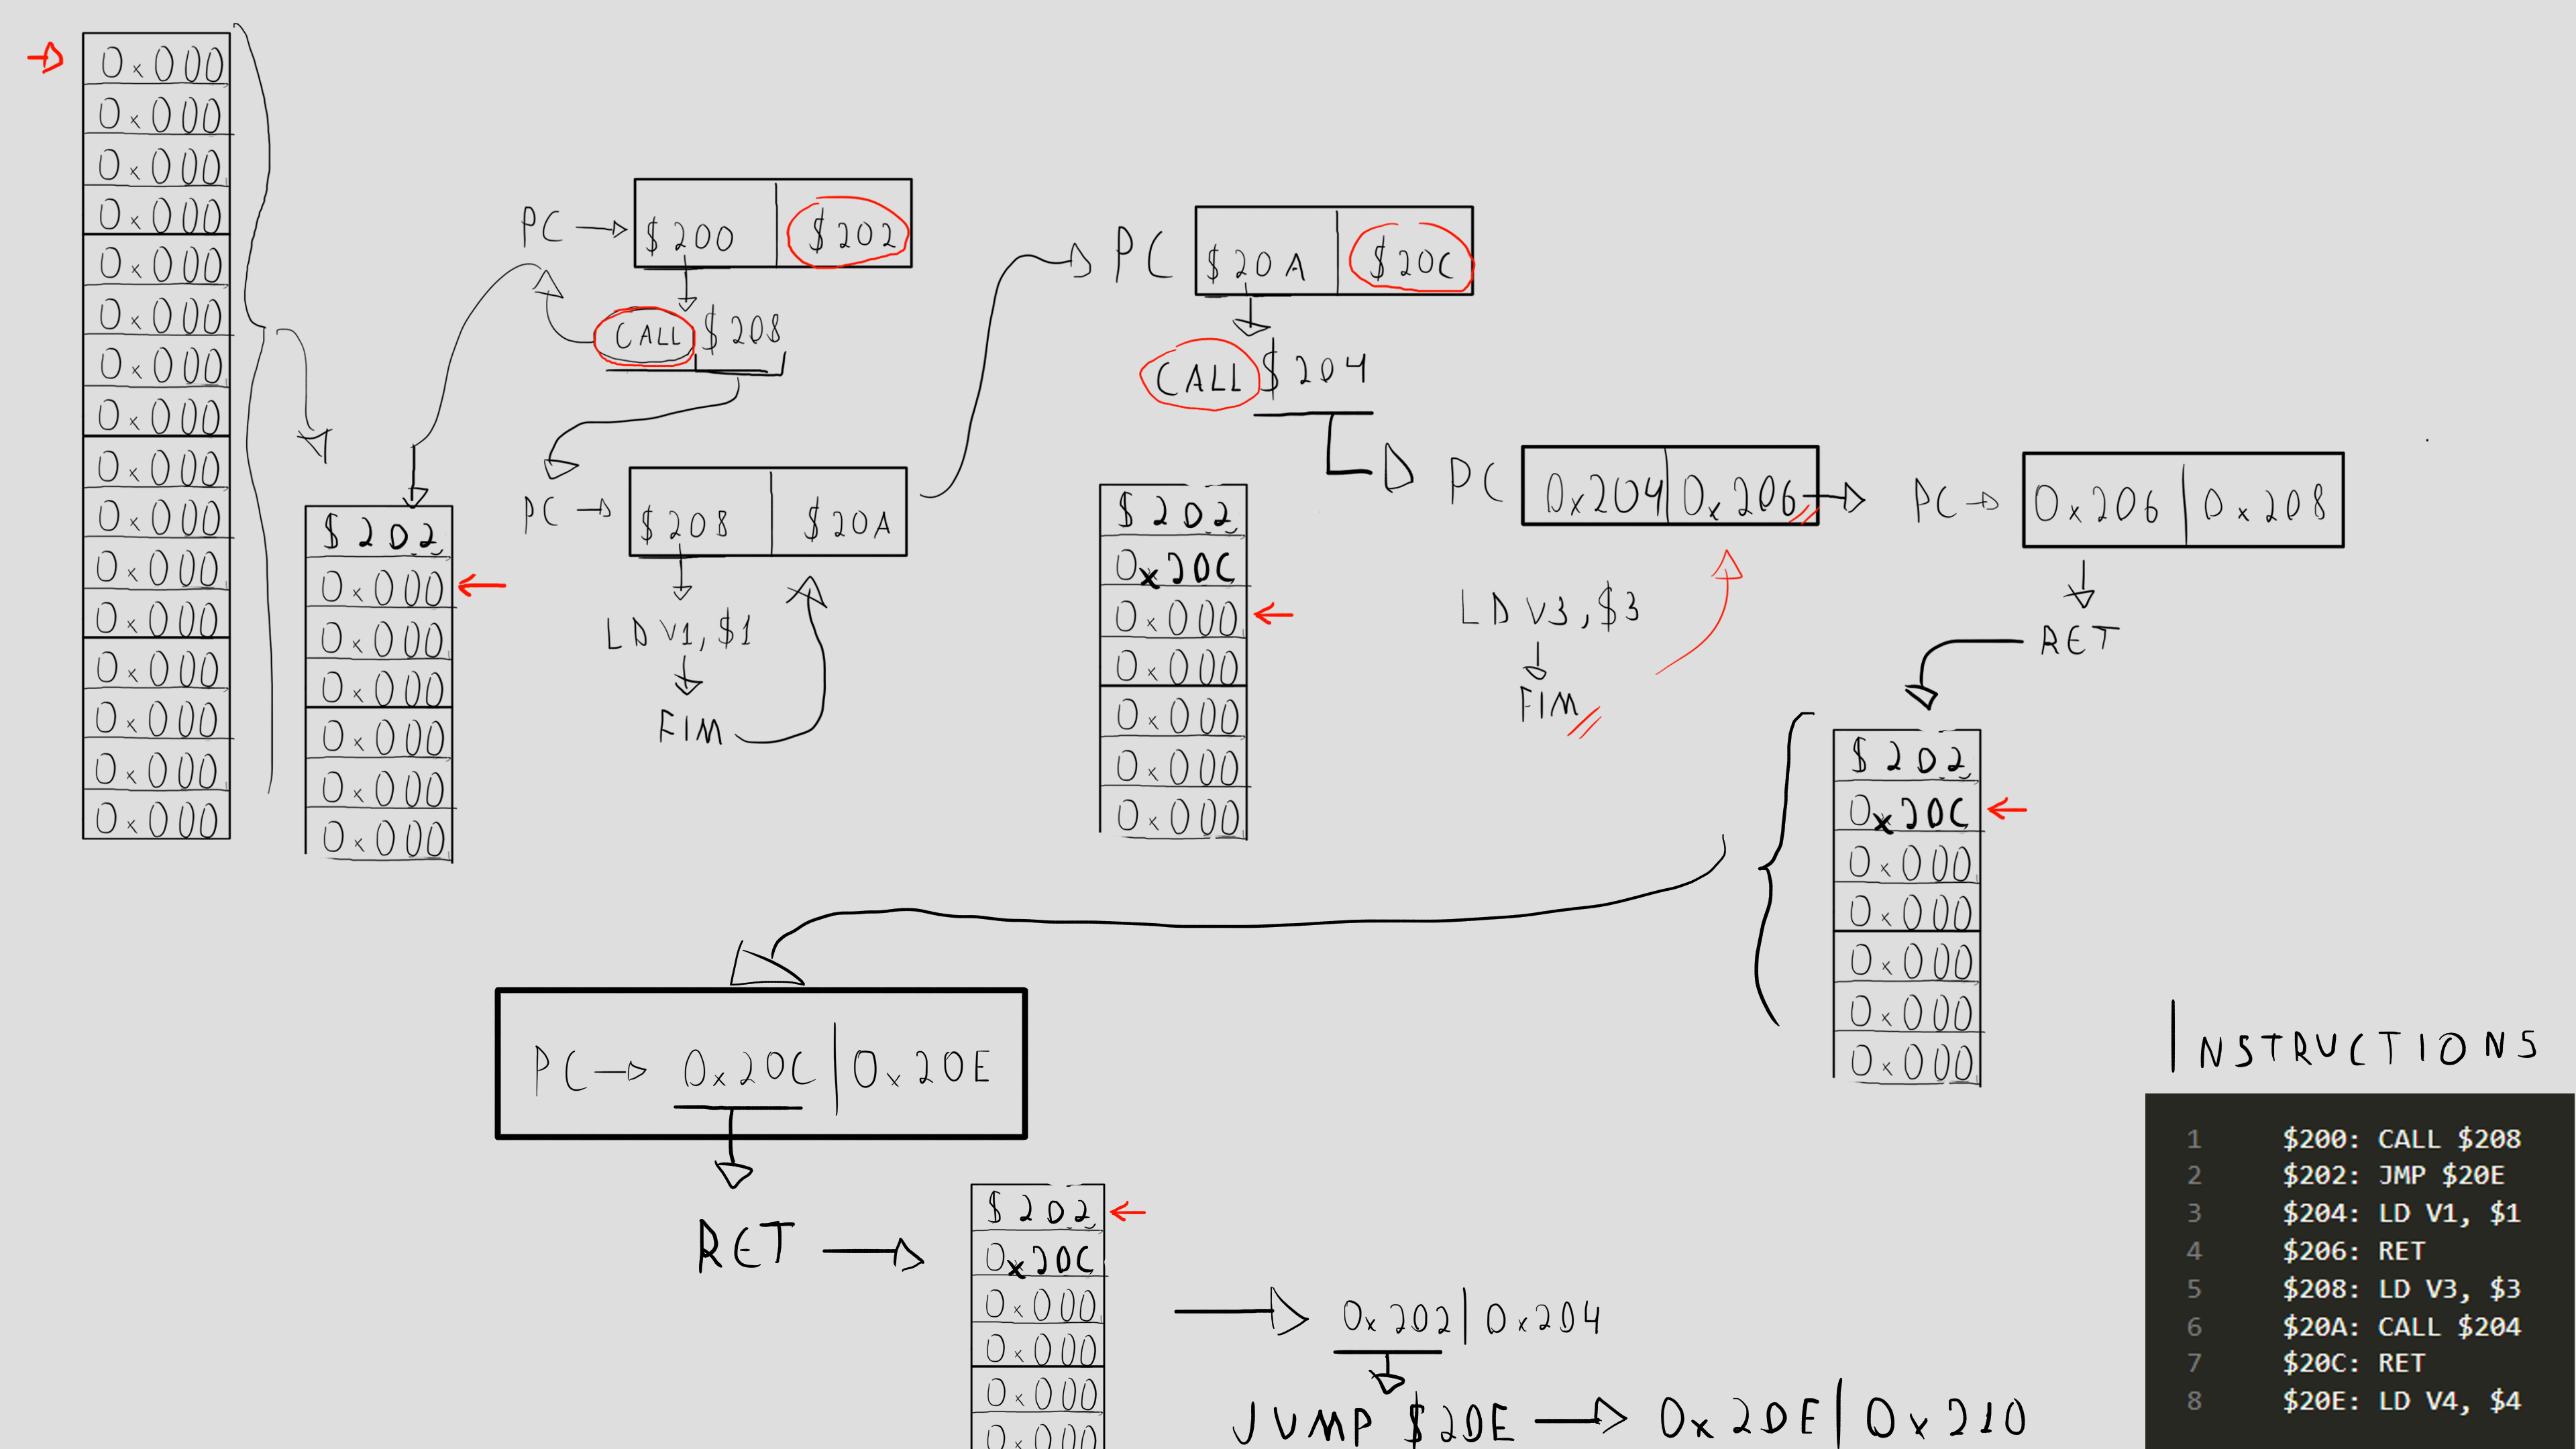 0x000
0x000
0x000
0x000
0x000
0x000
0x000
0x000
0x000
0x000
0x000
0x000
0x000
0x000
0x000
0x000
$202
0x000
0x000
0x000
0x000
0x000
0x000
PC $200 $202
CALL $208
PC $208 $20A
LD V1, $1
FIM
PC $20A $20C
CALL $204
$202
0x20C
0x000
0x000
0x000
0x000
0x000
PC 0x204 0x206
LD V3, $3
FIM
PC 0x206 0x208
RET
$202
0x20C
0x000
0x000
0x000
0x000
0x000
PC 0x20C 0x20E
RET
$202
0x20C
0x000
0x000
0x000
0x000
0x202 0x204
JUMP $20E 0x20E 0x210
INSTRUCTIONS
1 $200: CALL $208
2 $202: JMP $20E
3 $204: LD V1, $1
4 $206: RET
5 $208: LD V3, $3
6 $20A: CALL $204
7 $20C: RET
8 $20E: LD V4, $4